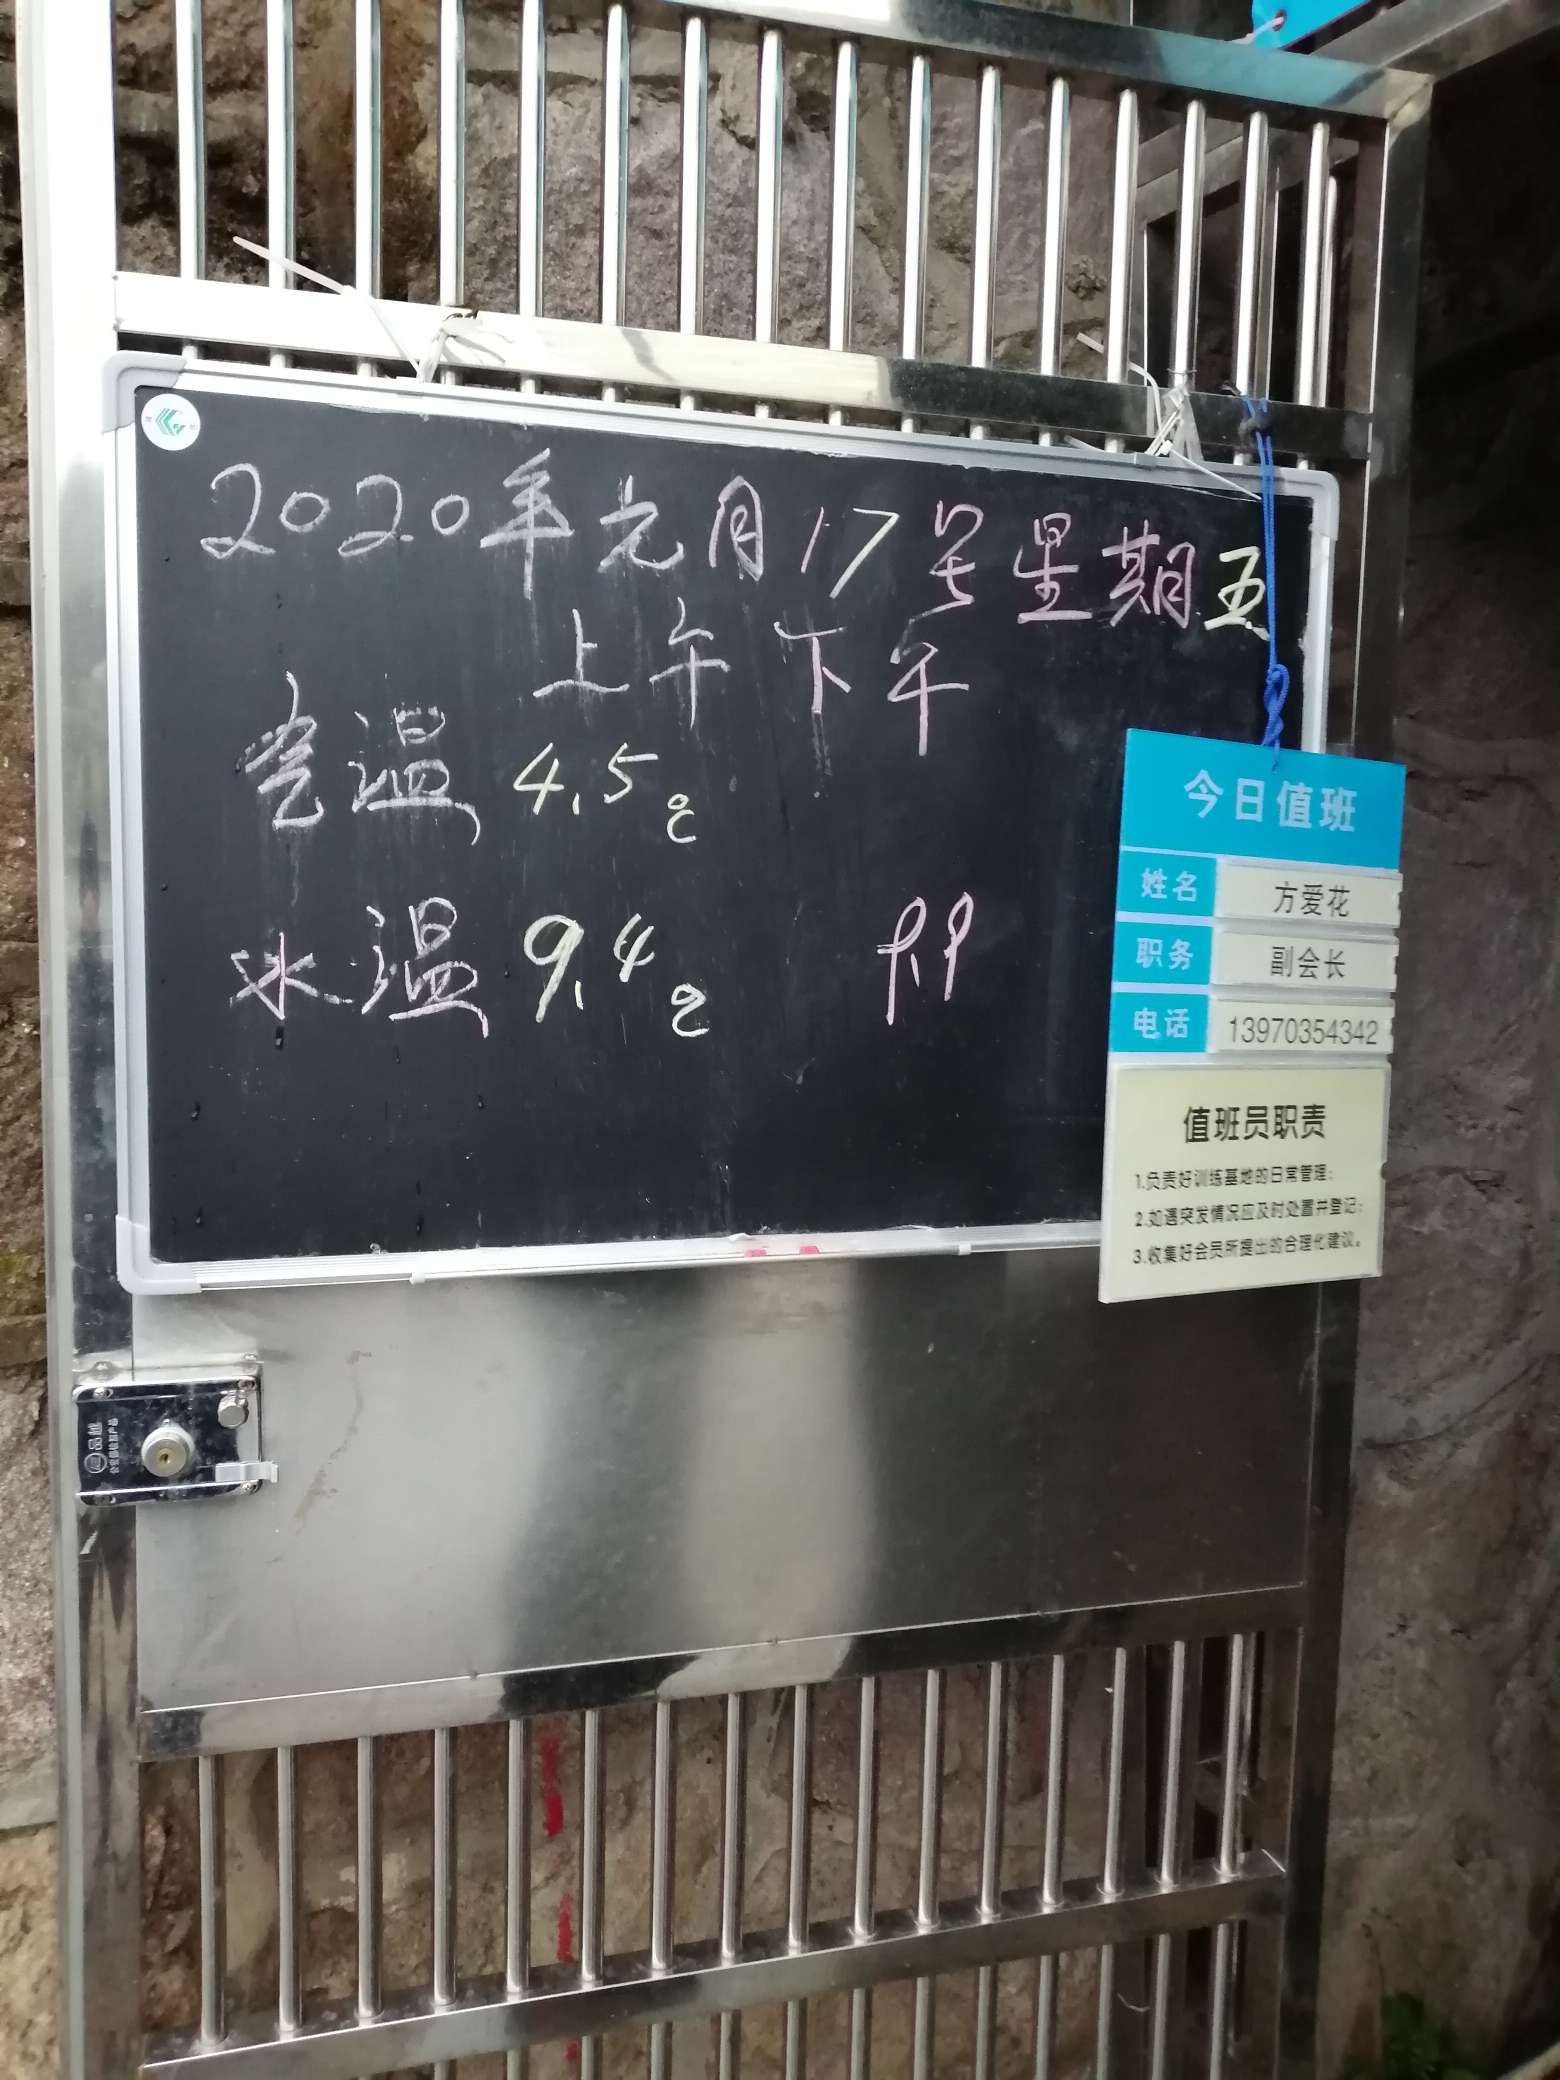 2020年元月17号星期五
上午 下午
气温 4.5℃
水温 9.4℃ 9.9
今日值班
姓名 方爱花
职务 副会长
电话 13970354342
值班员职责
1.负责好训练基地的日常管理;
2.如遇突发情况应及时处置并登记;
3.收集好会员所提出的合理化建议。